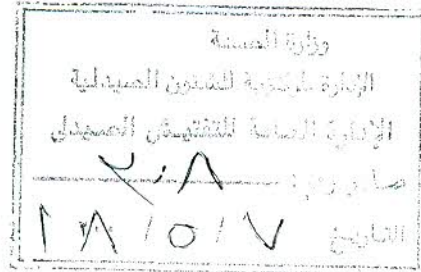 وزارة الصحة
الإدارة المركزية للشئون الصيدلية
الإدارة العامة للتفتيش الصيدلي
٢٠٨
التاريخ ١٨/٥/٧